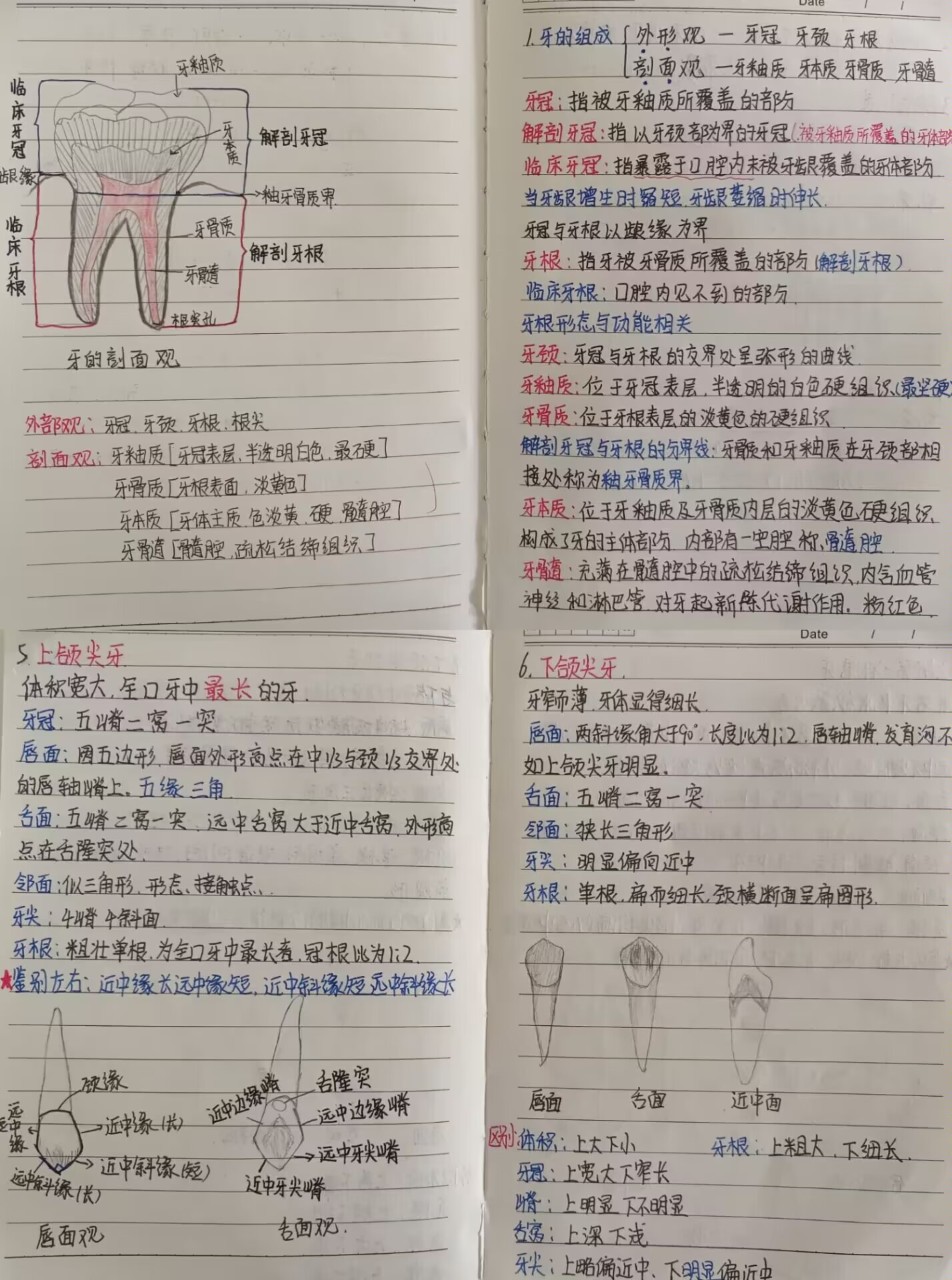 牙釉质
临床牙冠
牙本质
解剖牙冠
龈缘
釉牙骨质界
临床牙根
牙骨质
解剖牙根
牙髓
根尖孔
牙的剖面观
外部观：牙冠 牙颈 牙根 根尖
剖面观：牙釉质[牙冠表层,半透明白色,最硬]
牙骨质[牙根表面,淡黄色]
牙本质[牙体主质,色淡黄,硬,髓腔]
牙髓[髓腔,疏松结缔组织]
Date / /
1.牙的组成 外形观 — 牙冠 牙颈 牙根
剖面观 — 牙釉质 牙本质 牙骨质 牙髓
牙冠：指被牙釉质所覆盖的部分
解剖牙冠：指以牙颈部为界的牙冠(被牙釉质所覆盖的牙体部
临床牙冠：指暴露于口腔内未被牙龈覆盖的牙体部分
当牙龈增生时缩短,牙龈萎缩时伸长.
牙冠与牙根以龈缘为界
牙根：指牙被牙骨质所覆盖的部分(解剖牙根)
临床牙根：口腔内见不到的部分.
牙根形态与功能相关
牙颈：牙冠与牙根的交界处呈弧形的曲线.
牙釉质：位于牙冠表层,半透明的白色硬组织(最坚硬)
牙骨质：位于牙根表层的淡黄色的硬组织.
解剖牙冠与牙根的分界线：牙骨质和牙釉质在牙颈部相
接处称为釉牙骨质界。
牙本质：位于牙釉质及牙骨质内层的淡黄色硬组织,
构成了牙的主体部分 内部有一空腔称,髓腔.
牙髓：充满在髓腔中的疏松结缔组织,内含血管
神经和淋巴管 对牙起新陈代谢作用. 粉红色.
5.上颌尖牙.
体积宽大,全口牙中最长的牙.
牙冠：五嵴二窝一突.
唇面：圆五边形,唇面外形高点在中1/3与颈1/3交界处
的唇轴嵴上。五缘三角
舌面：五嵴二窝一突 远中舌窝大于近中舌窝,外形高
点在舌隆突处.
邻面：似三角形.形态、接触点、
牙尖：4嵴4斜面.
牙根：粗壮单根,为全口牙中最长者,冠根比为1:2.
★鉴别左右：近中缘长远中缘短,近中斜缘短 远中斜缘长
颈缘
远中缘
近中缘(长)
近中斜缘(短)
远中斜缘(长)
唇面观
近中边缘嵴
舌隆突
远中边缘嵴
远中牙尖嵴
近中牙尖嵴
舌面观.
Date / /
6.下颌尖牙.
牙窄而薄,牙体显得细长.
唇面：两斜缘角大于90°,长度比为1:2,唇轴嵴,发育沟不
如上颌尖牙明显.
舌面：五嵴二窝一突
邻面：狭长三角形
牙尖：明显偏向近中
牙根：单根,扁而细长,颈横断面呈扁圆形.
唇面
舌面
近中面
区别：体积：上大下小 牙根：上粗大,下细长.
牙冠：上宽大下窄长
嵴：上明显下不明显
舌窝：上深下浅
牙尖：上略偏近中、下明显偏近中